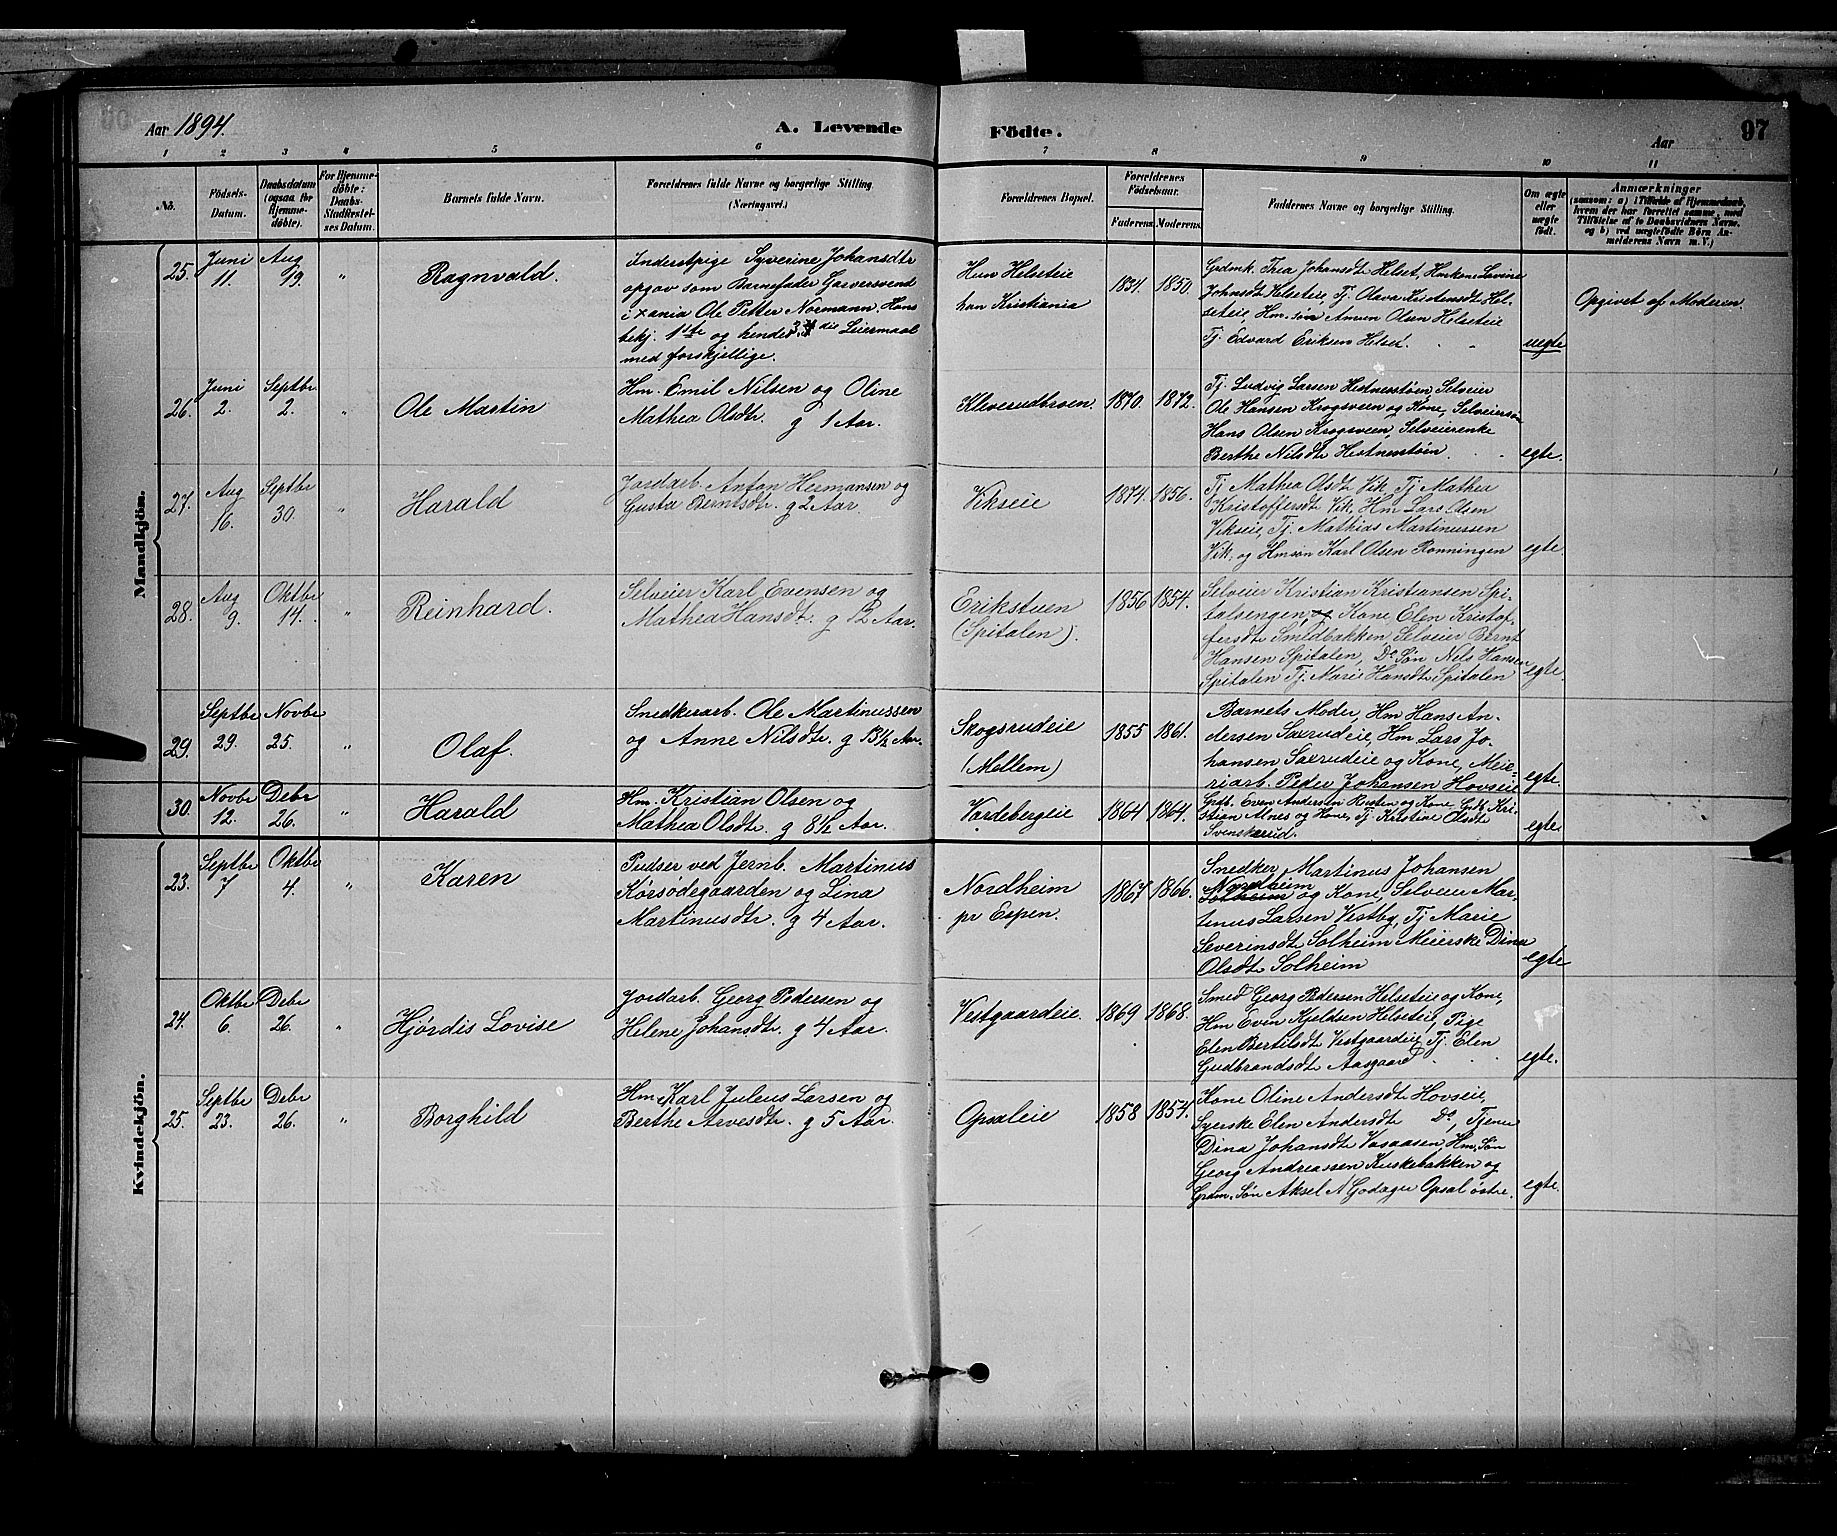 Aar 1894.
A. Levende
Födte.
Aar
97
1 2 3 4 5 6 7 8 9 10 11
No.
Födsels-
Datum.
Daabsdatum
(ogsaa for
Hjemme-
döbte).
For Hjemme-
döbte:
Daabs-
Stadfæstel-
ses Datum.
Barnets fulde Navn.
Forældrenes fulde Navne og borgerlige Stilling.
(Næringsvei.)
Forældrenes Bopæl.
Forældrenes
Födselsaar.
Faderens.
Moderens.
Faddernes Navne og borgerlige Stilling.
Om ægte
eller
uægte
födt.
Anmærkninger
(saasom: a) i Tilfælde af Hjemmedaab,
hvem der har forrettet samme, med
Tilföielse af to Daabsvidners Navne,
og b) ved uægtefödte Börn An-
melderens Navn m. V.)
Mandkjön.
25.
Juni
11.
Aug
19.
"
Ragnvald.
Inderstpige Syverine Johansdtr
opgav som Barnefader Garversvend
i Xania Ole Petter Normann. Hans
bekj. 1ste og hendes 3die Leiermaal
med forskjellige.
Hun Helseteie
han Kristiania
1834.
1850.
Grdmk. Thea Johansdt Helset, Hmkone Lovine
Johnsdt Helseteie, Tj. Olava Kristensdt Hel-
seteie, Hm. søn Amun Olsen Helseteie
Tj. Edvard Eriksen Helset.
uegte
Opgivet af Moderen.
26.
Juni
2.
Septbr
2.
"
Ole Martin
Hm. Emil Nilsen og Oline
Mathea Olsdtr. g 1 Aar.
Kleverudbroen.
1870.
1872.
Tj. Ludvig Larsen Hestnesstøen, Selveier
Ole Hansen Krogsveen og Kone, Selveiersøn
Hans Olsen Krogsveen, Selveierenke
Berthe Nilsdt Hestnesstøen.
egte.
27.
Aug
16.
Septbr
30.
"
Harald
Jordarb. Anton Hermansen og
Gusta Berntsdtr. g 2 Aar.
Vikseie
1874.
1856.
Tj. Mathea Olsdt Vik. Tj Mathea
Kristoffersdt Vik, Hm Lars Olsen
Vikseie, Tj. Mathias Martinussen
Vik. og Hmsøn Karl Olsen Rønningen
egte.
28.
Aug
9.
Oktbr
14.
"
Reinhard.
Selveier Karl Evensen og
Mathea Hansdt. g 12 Aar.
Erikstuen
(Spitalen).
1856
1854.
Selveier Kristian Kristiansen Spi-
talsengen, og Kone, Elen Kristof-
fersdt Smedbakken, Selveier Bernt
Hansen Spitalen, Do Søn Nils Hansen
Spitalen Tj. Marie Hansdt Spitalen
egte.
29.
Septbr
29.
Novbr
25.
"
Olaf.
Snedkerarb. Ole Martinussen
og Anne Nilsdtr. g 13½ Aar.
Skogsrudeie
(Mellem)
1855
1861.
Barnets Moder, Hm Hans An-
dersen Saxrudeie, Hm Lars Jo-
hansen Saxrudeie og Kone, Mei-
riarb. Peder Johansen Hovseie
egte.
30.
Novbr
12.
Debr
26.
"
Harald
Hm. Kristian Olsen og
Mathea Olsdtr. g 8½ Aar.
Vardebergeie
1864
1864.
Grdb. Even Andersen og Kone, Grdb. Kri-
stian Alnes og Kone, Tj Kristine Olsdt
Svenskerud.
egte.
Kvindekjön.
23.
Septbr
7
Oktbr
4.
"
Karen
Pudser ved Jernb. Martinus
Korsødegaarden og Lina
Martinusdtr. g 4 Aar.
Nordheim
pr Espen.
1867
1866.
Snedker Martinus Johansen
Nordheim
Solheim og Kone, Selveier Mar-
tinus Larsen Vestby, Tj Marie
Severinsdt Solheim Meierske Dina
Olsdt Solheim
egte
24.
Oktbr
6.
Debr
26.
"
Hjørdis Lovise
Jordarb. Georg Pedersen og
Helene Johansdtr. g 4 Aar.
Vestgaardeie.
1869
1868.
Smed Georg Pedersen Helseteie og Kone,
Hm Even Kjeldsen Helseteie, Pige
Elen Bertilsdt Vestgaardeie, Tj. Elen
Gudbrandsdt Aasgaard
egte.
25.
Septbr
23.
Debr
26.
"
Borghild
Hm. Karl Julius Larsen og
Berthe Arvesdtr. g 5 Aar.
Opsaleie
1858
1854.
Kone Oline Andersdt Hovseie,
Syerske Elen Andersdt Do, Tjener
Dina Johansdt Vasaasen Hm, Søn
Georg Andreassen Kuskebakken og
Grdm. Søn Aksel A Godager Opsal østre.
egte.